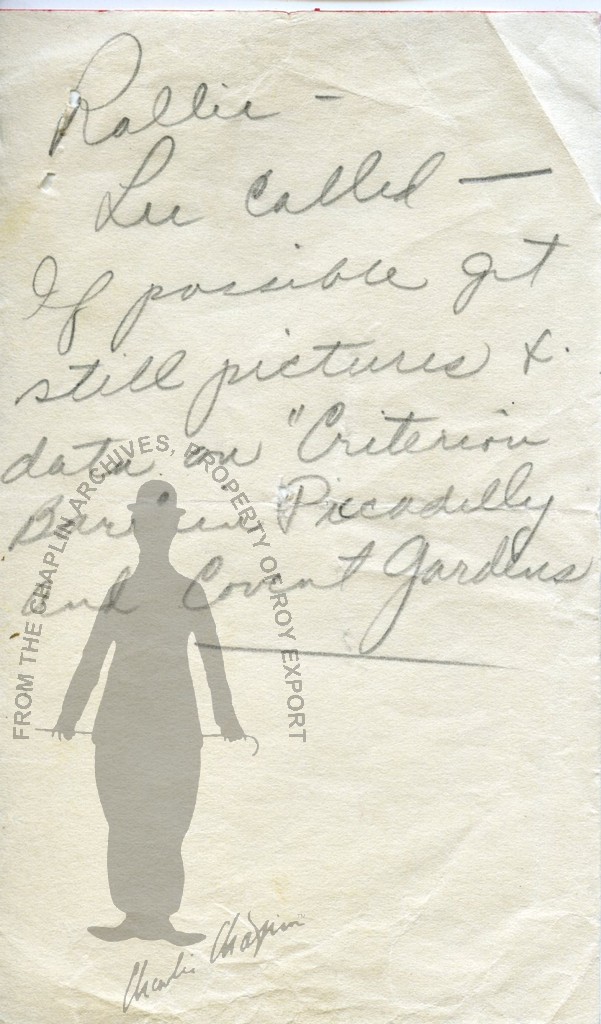 Rollie -
Lee called —
If possible get
still pictures &.
data on "Criterion
Bar" in Picadilly
and Covent Gardens
FROM THE CHAPLIN ARCHIVES, PROPERTY OF ROY EXPORT
Charlie Chaplin